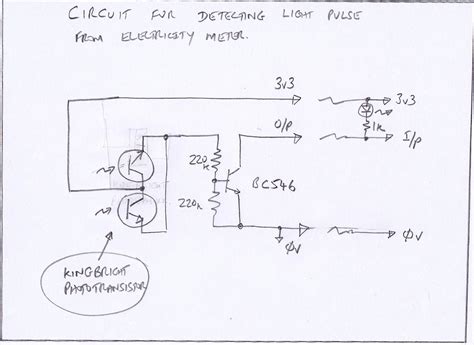 CIRCUIT FOR DETECTING LIGHT PULSE
FROM ELECTRICITY METER.
3v3
3v3
O/P
1k
I/p
220k
BC546
220k
φv
φv
KINGBRIGHT
PHOTOTRANSISTOR